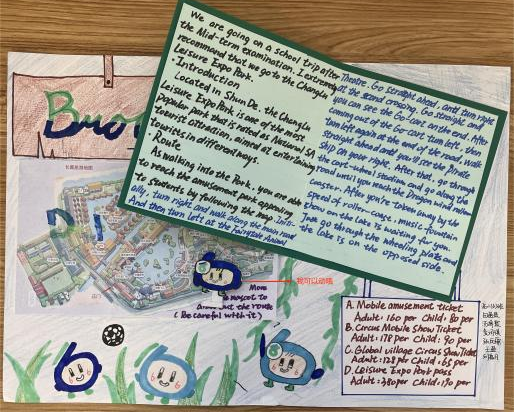 We are going on a school trip after
the Mid-term examination. I extremely
recommend that we go to the Changlu
Leisure Expo Park.
· Introduction
Located in Shun De, the Changlu
Leisure Expo Park is one of the most
popular park that is rated as National 5A
tourist attraction aimed at entertaining
tourists in different ways.
· Route
As walking into the Park, you are able
to reach the amusement park appealing
to students by following the map. Initi-
ally, turn right and walk along the main road
And then turn left at the Fairytale Animal
Theatre. Go straight ahead, until turn right
at the second crossing. Go straight and
you can see the Go-cart on the end. After
coming out of the Go-cart, turn left, then
turn left again at the end of the road. Walk
straight ahead and you'll see the Pirate
Ship on your right. After that, go through
the cart-wheel stadium and go along the
road until you reach the Dragon wind roller
coaster. After you're taken away by the
speed of roller-coast, music fountain
town on the lake is waiting for you.
Just go through the wheeling plate and
the lake is on the opposed side.
长鹿旅游地图
我可以动哦
Move
mascot to
the route
(Be careful with it)
A. Mobile amusement ticket
Adult: 160 per Child: 80 per
B. Circus Mobile Show Ticket
Adult: 178 per Child: 90 per
C. Global village Circus Show Ticket
Adult: 128 per Child: 65 per
D. Leisure Expo Park pass
Adult: 380 per Child: 190 per